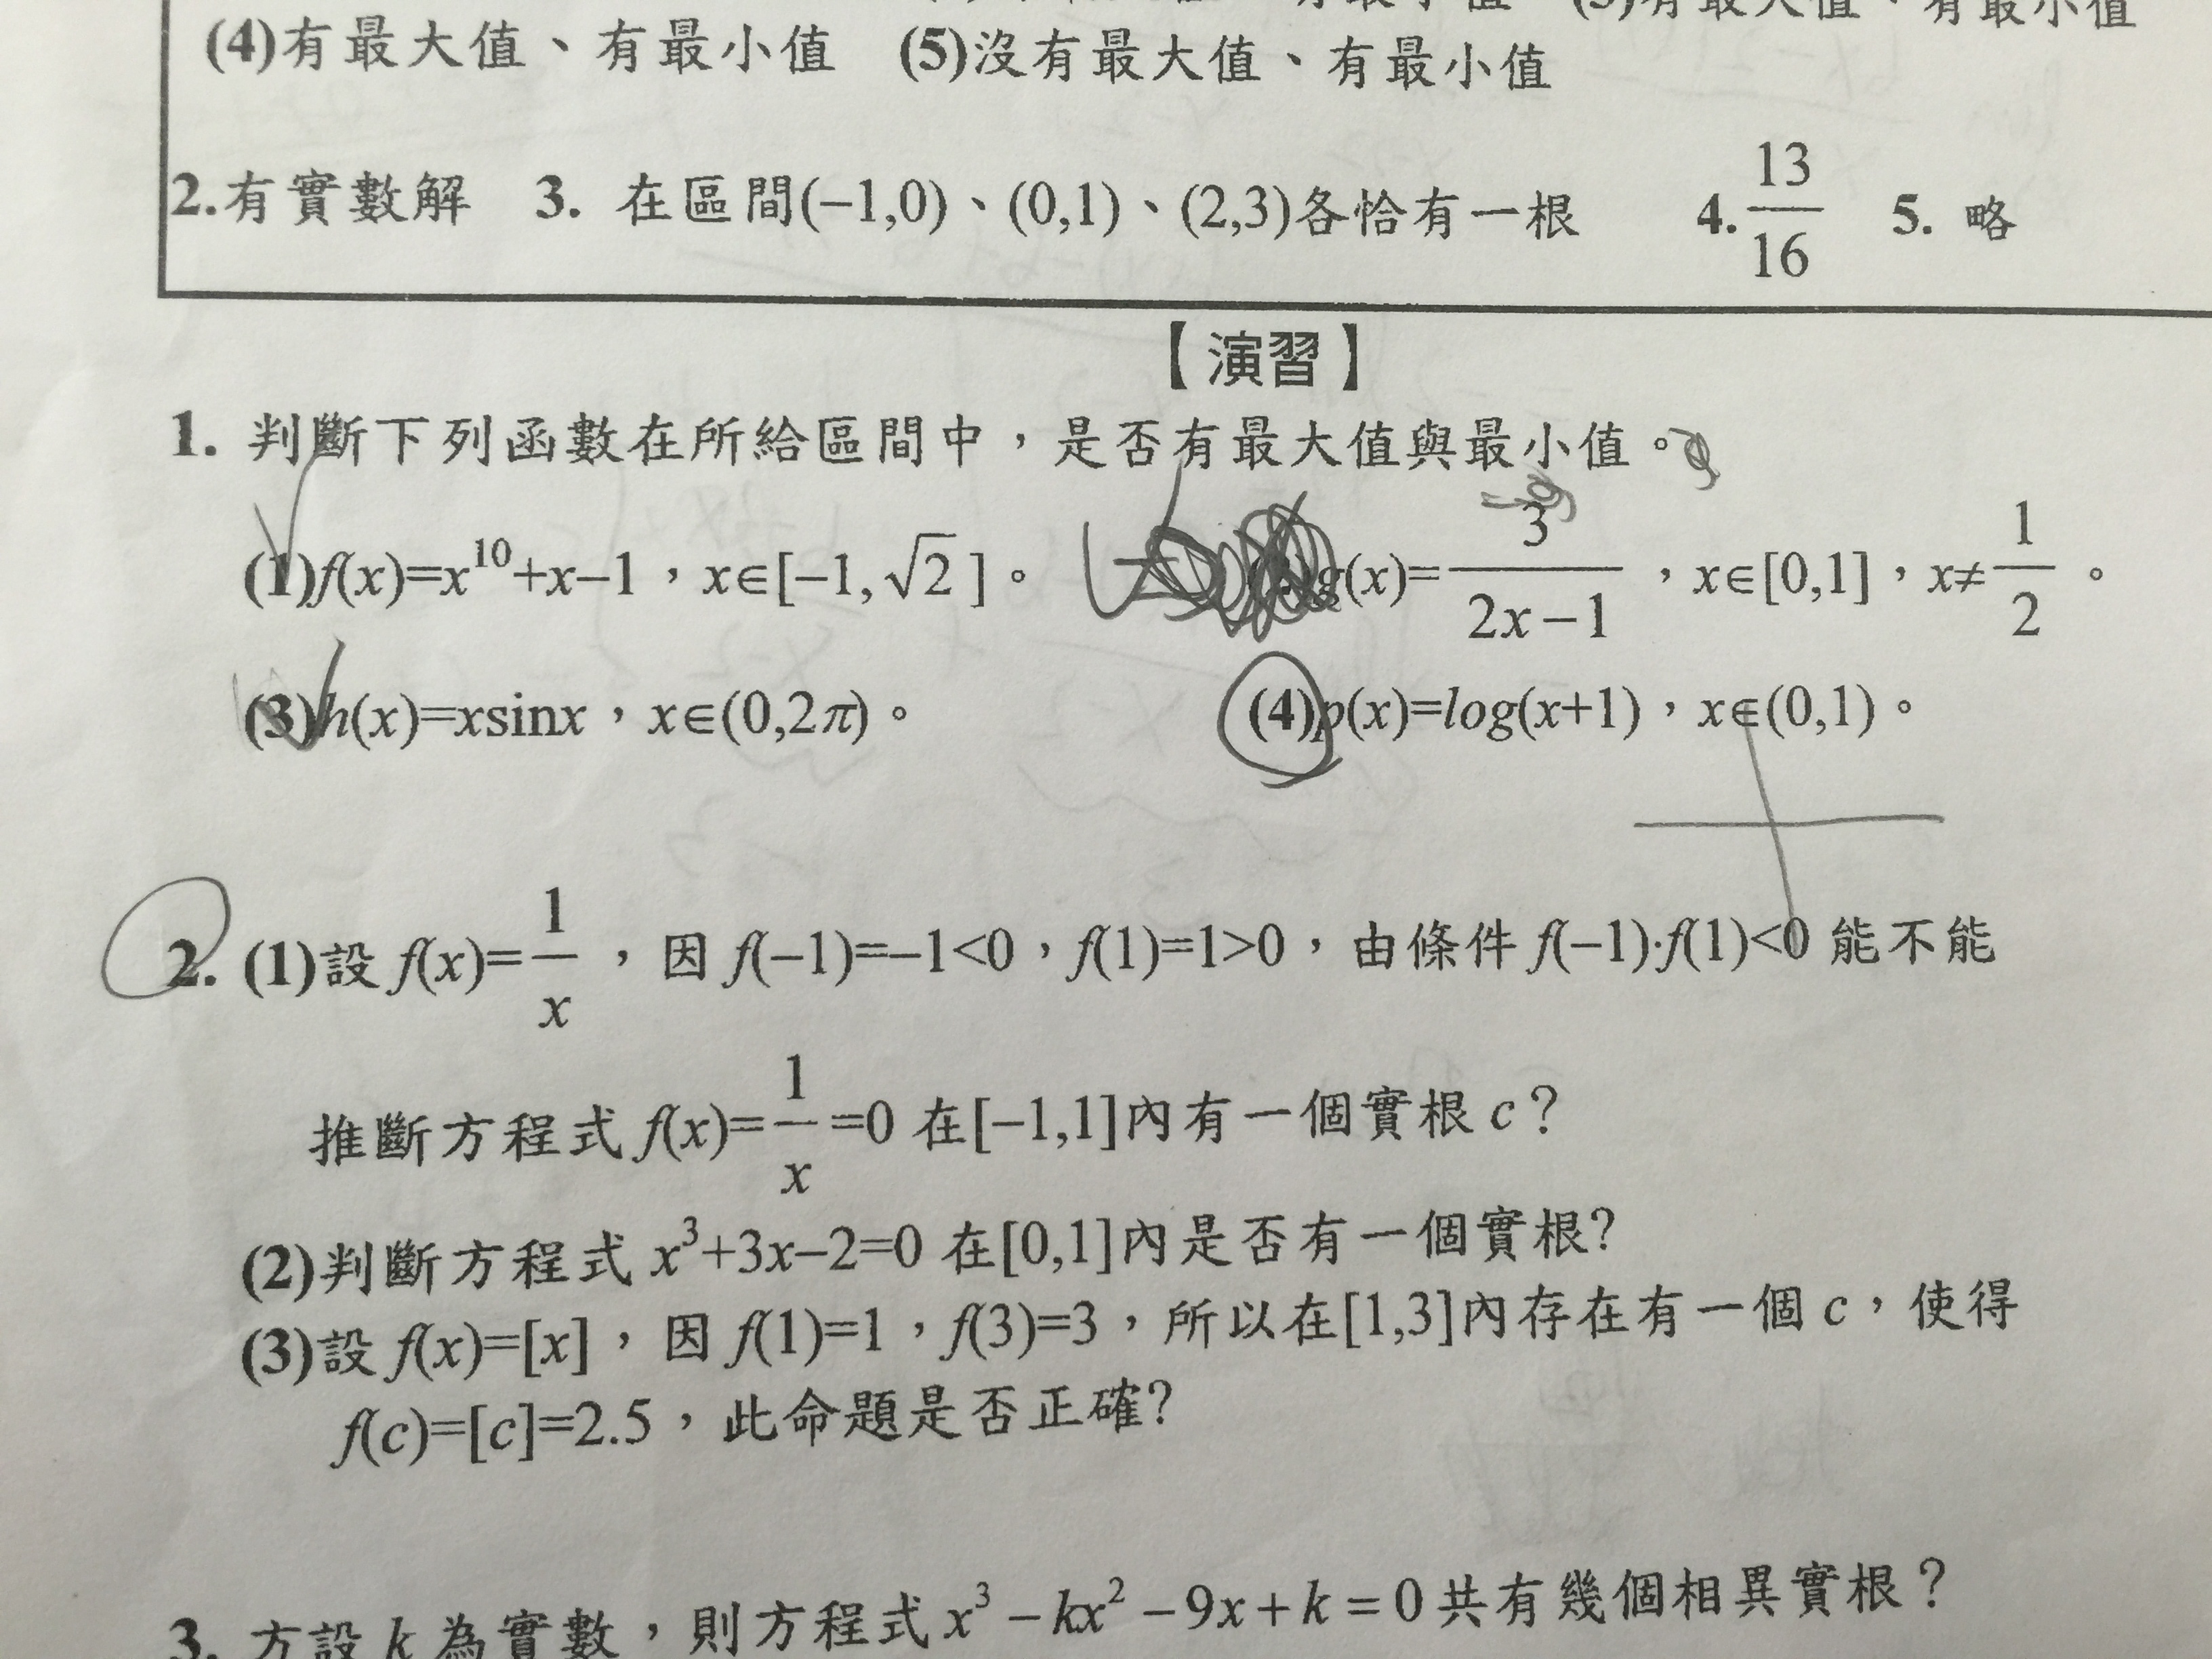 有最小值 (3)有最大值、有最小值
(4)有最大值、有最小值 (5)沒有最大值、有最小值
2.有實數解 3. 在區間(−1,0)、(0,1)、(2,3)各恰有一根 4. 13/16 5. 略
【演習】
1. 判斷下列函數在所給區間中，是否有最大值與最小值。
(1)f(x)=x¹⁰+x−1，x∈[−1,√2]。 g(x)=3/(2x−1)，x∈[0,1]，x≠1/2。
(3)h(x)=xsinx，x∈(0,2π)。 (4)p(x)=log(x+1)，x∈(0,1)。
2. (1)設 f(x)=1/x，因 f(−1)=−1<0，f(1)=1>0，由條件 f(−1)·f(1)<0 能不能
推斷方程式 f(x)=1/x=0 在[−1,1]內有一個實根 c？
(2)判斷方程式 x³+3x−2=0 在[0,1]內是否有一個實根?
(3)設 f(x)=[x]，因 f(1)=1，f(3)=3，所以在[1,3]內存在有一個 c，使得
f(c)=[c]=2.5，此命題是否正確?
3. 方設 k 為實數，則方程式 x³−kx²−9x+k=0 共有幾個相異實根？